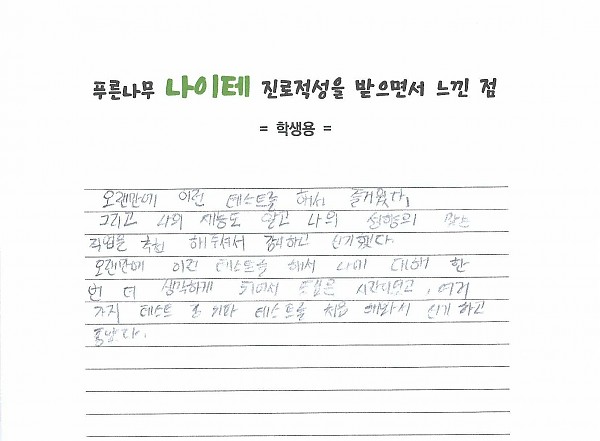 푸른나무 나이테 진로적성을 받으면서 느낀 점
= 학생용 =
오랜만에 이런 테스트를 해서 즐거웠다.
그리고 나의 재능도 알고 나의 성향의 맞는
직업을 추천 해주셔서 감사하고 신기했다.
오랜만에 이런 테스트를 해서 나에 대해 한
번 더 생각하게 되어서 뜻깊은 시간이었고, 여러
가지 테스트 중 지파 테스트를 처음 해봐서 신기 하고